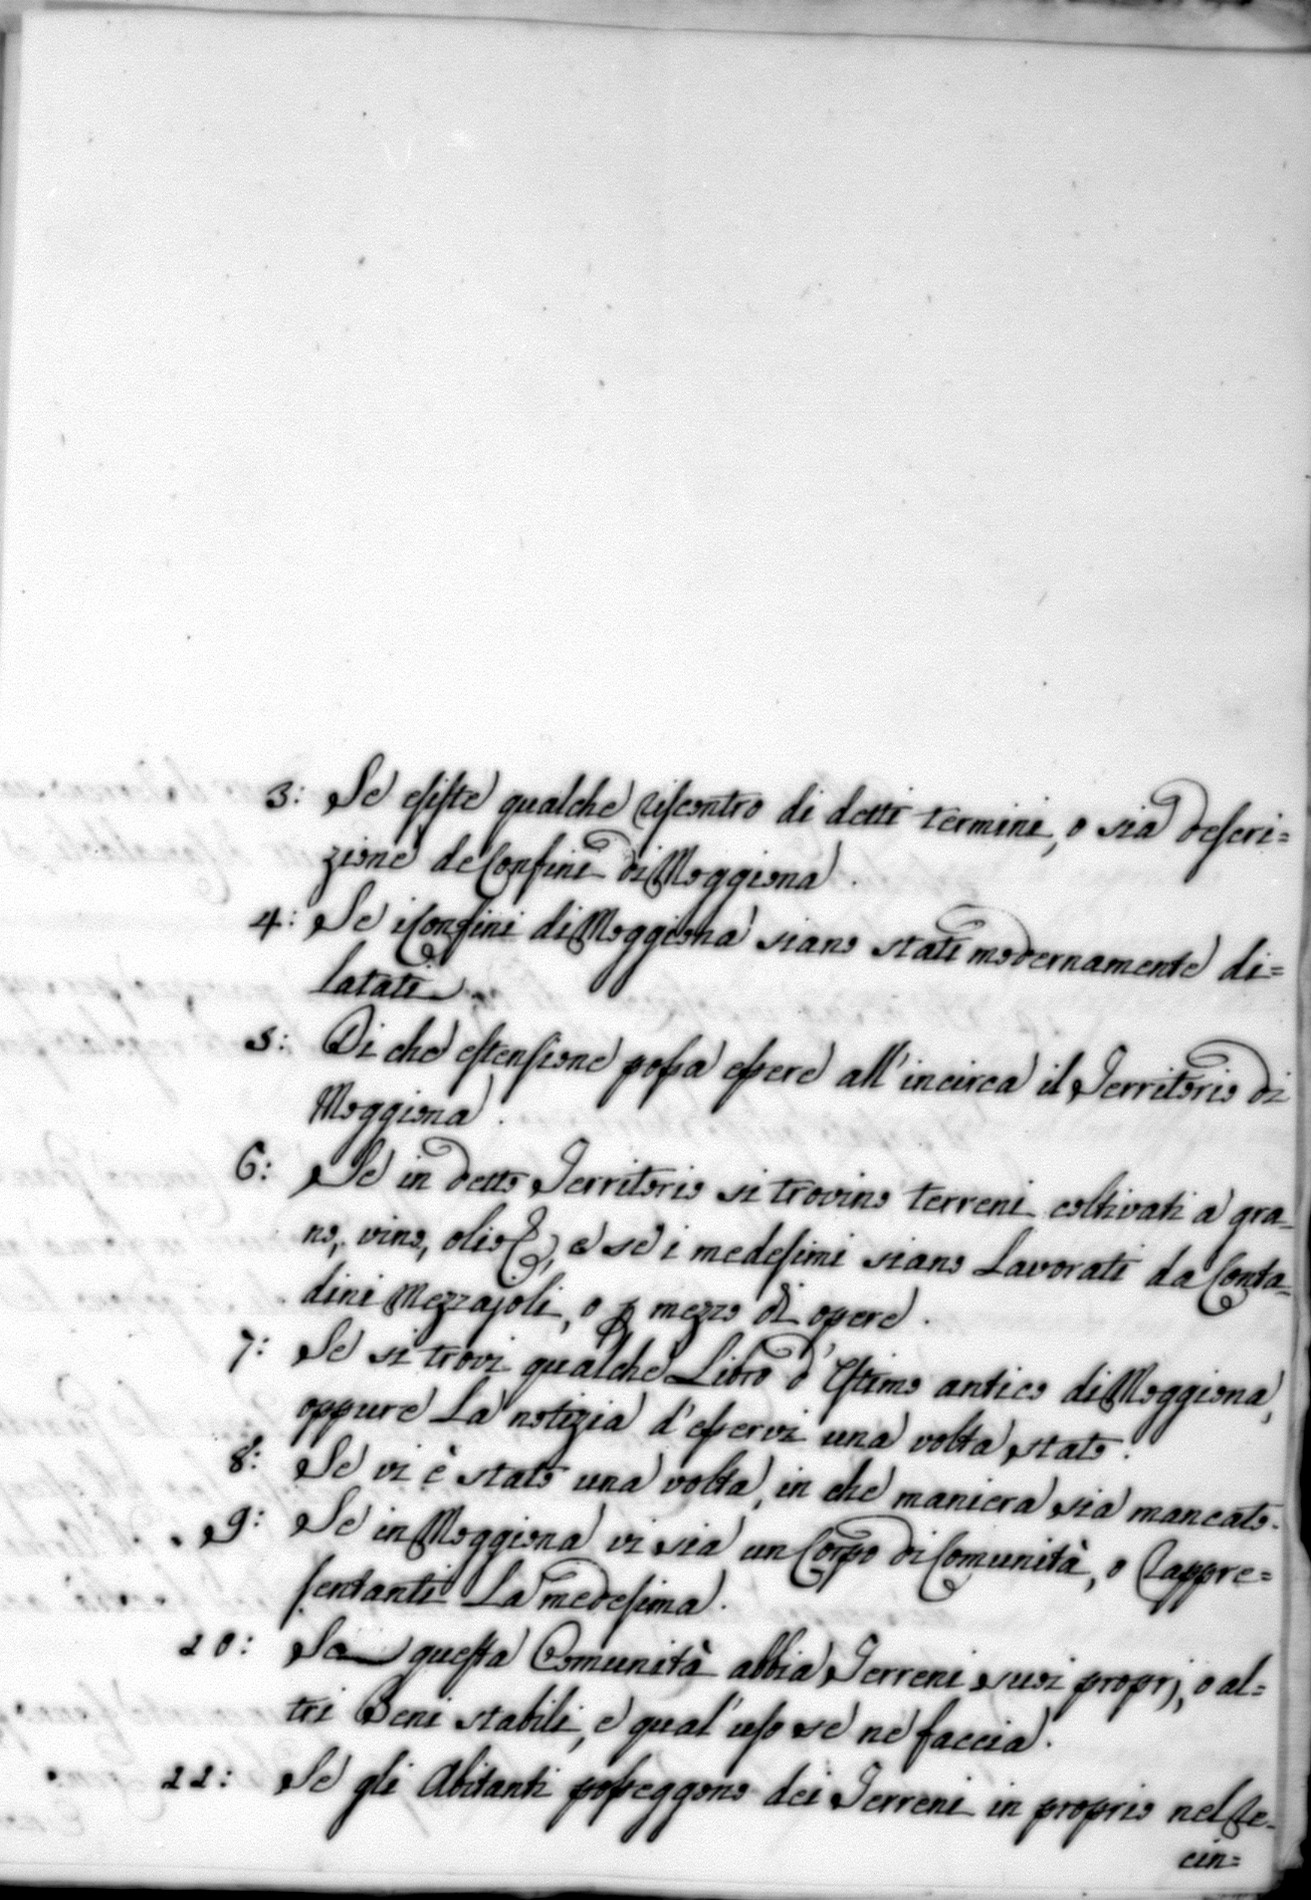 3: Se esiste qualche riscontro di detti termini, o sia descri=
zione de Confini di Moggiona.
4: Se i Confini di Moggiona siano stati modernamente di=
latati.
5: Di che estensione possa essere all'incirca il Territorio di
Moggiona.
6: Se in detto Territorio si trovino terreni coltivati a gra=
no, vino, olio &, e se i medesimi siano lavorati da Conta=
dini Mezzajoli, o p mezzo di opere.
7: Se si trovi qualche Libro d'Estimo antico di Moggiona,
oppure la notizia d'esservi una volta stato.
8: Se vi è stato una volta, in che maniera sia mancato.
9: Se in Moggiona vi sia un Corpo di Comunità, o rappre=
sentanti la medesima.
10: Se questa Comunità abbia Terreni suoi proprj, o al=
tri Beni stabili, e qual'uso se ne faccia.
11: Se gli Abitanti posseggono dei Terreni in proprio nel Re=
cin=